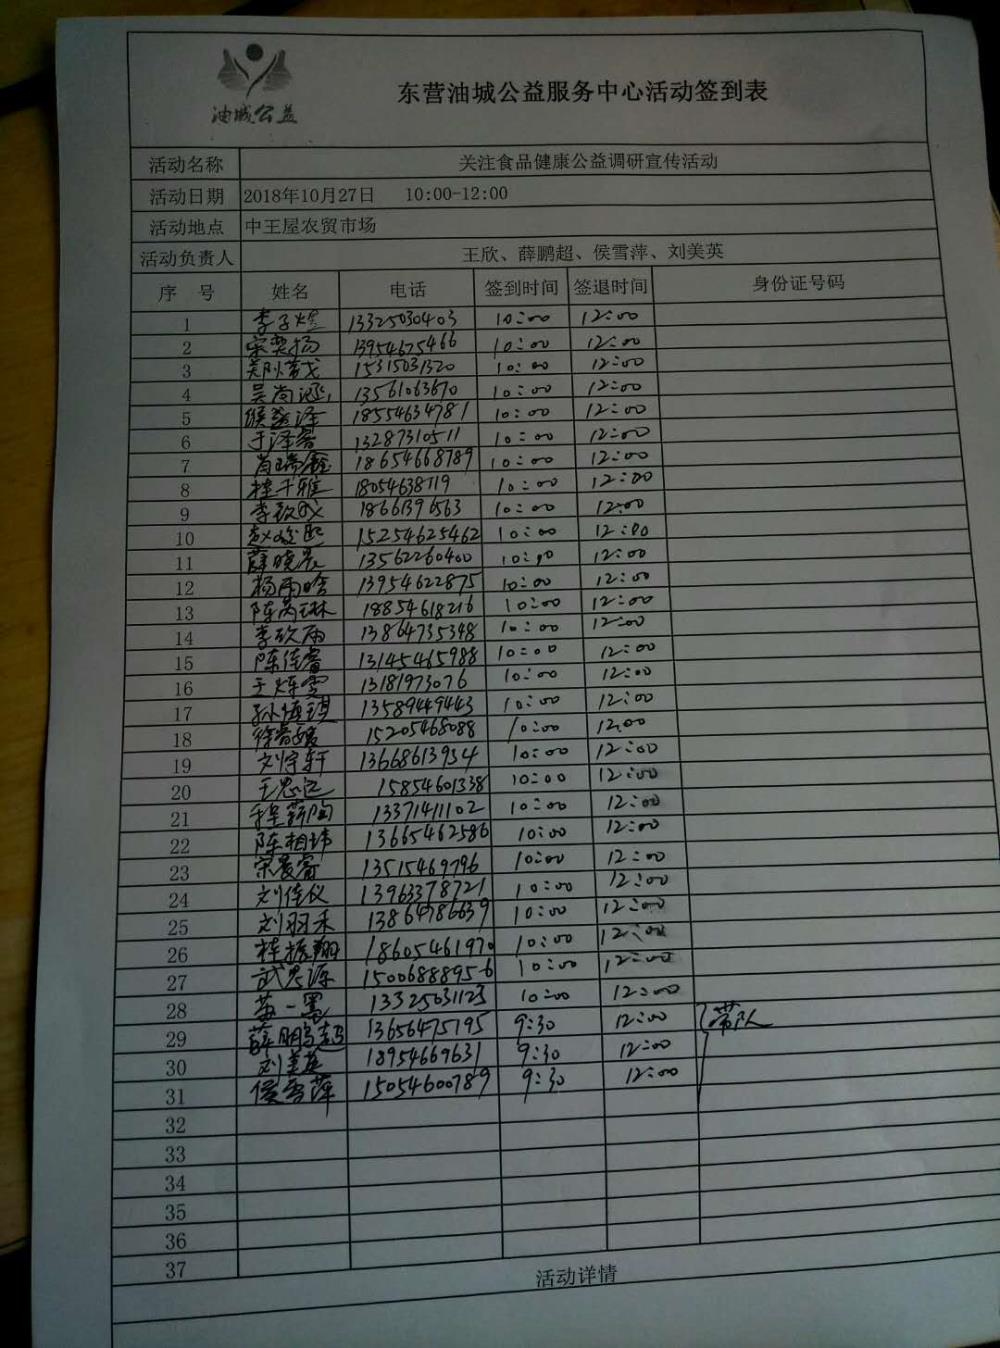 油城公益
东营油城公益服务中心活动签到表
活动名称 关注食品健康公益调研宣传活动
活动日期 2018年10月27日 10:00-12:00
活动地点 中王屋农贸市场
活动负责人 王欣、薛鹏超、侯雪萍、刘美英
序 号 姓名 电话 签到时间 签退时间 身份证号码
1 李子煜 13325030403 10:00 12:00
2 宋奕扬 13954675466 10:00 12:00
3 15315031320 10:00 12:00
4 吴尚泓 13561063670 10:00 12:00
5 18554634781 10:00 12:00
6 于泽 13287310511 10:00 12:00
7 尚瑞鑫 18654668789 10:00 12:00
8 桂千雅 18054638119 10:00 12:00
9 李玖成 18661396563 10:00 12:00
10 赵 15254625462 10:00 12:00
11 薛晓晨 13562260400 10:00 12:00
12 杨雨晗 13954622875 10:00 12:00
13 陈芮琳 18854618216 10:00 12:00
14 李玖雨 13864735348 10:00 12:00
15 陈佳睿 13145465988 10:00 12:00
16 王烁雯 13181973076 10:00 12:00
17 孙梅琪 13589449443 10:00 12:00
18 徐 15205468088 10:00 12:00
19 刘宇轩 13668613934 10:00 12:00
20 王思远 15854601338 10:00 12:00
21 程薪陶 13371411102 10:00 12:00
22 陈相玮 13665462586 10:00 12:00
23 宋晨睿 13515469796 10:00 12:00
24 刘佳仪 13963378721 10:00 12:00
25 刘羽禾 13864786639 10:00 12:00
26 桂振翔 18605461970 10:00 12:00
27 武思源 15006888956 10:00 12:00
28 苗一 13325031123 10:00 12:00
29 薛鹏超 13656475195 9:30 12:00 带队
30 刘美英 18954669631 9:30 12:00
31 侯雪萍 15054600789 9:30 12:00
32
33
34
35
36
37
活动详情